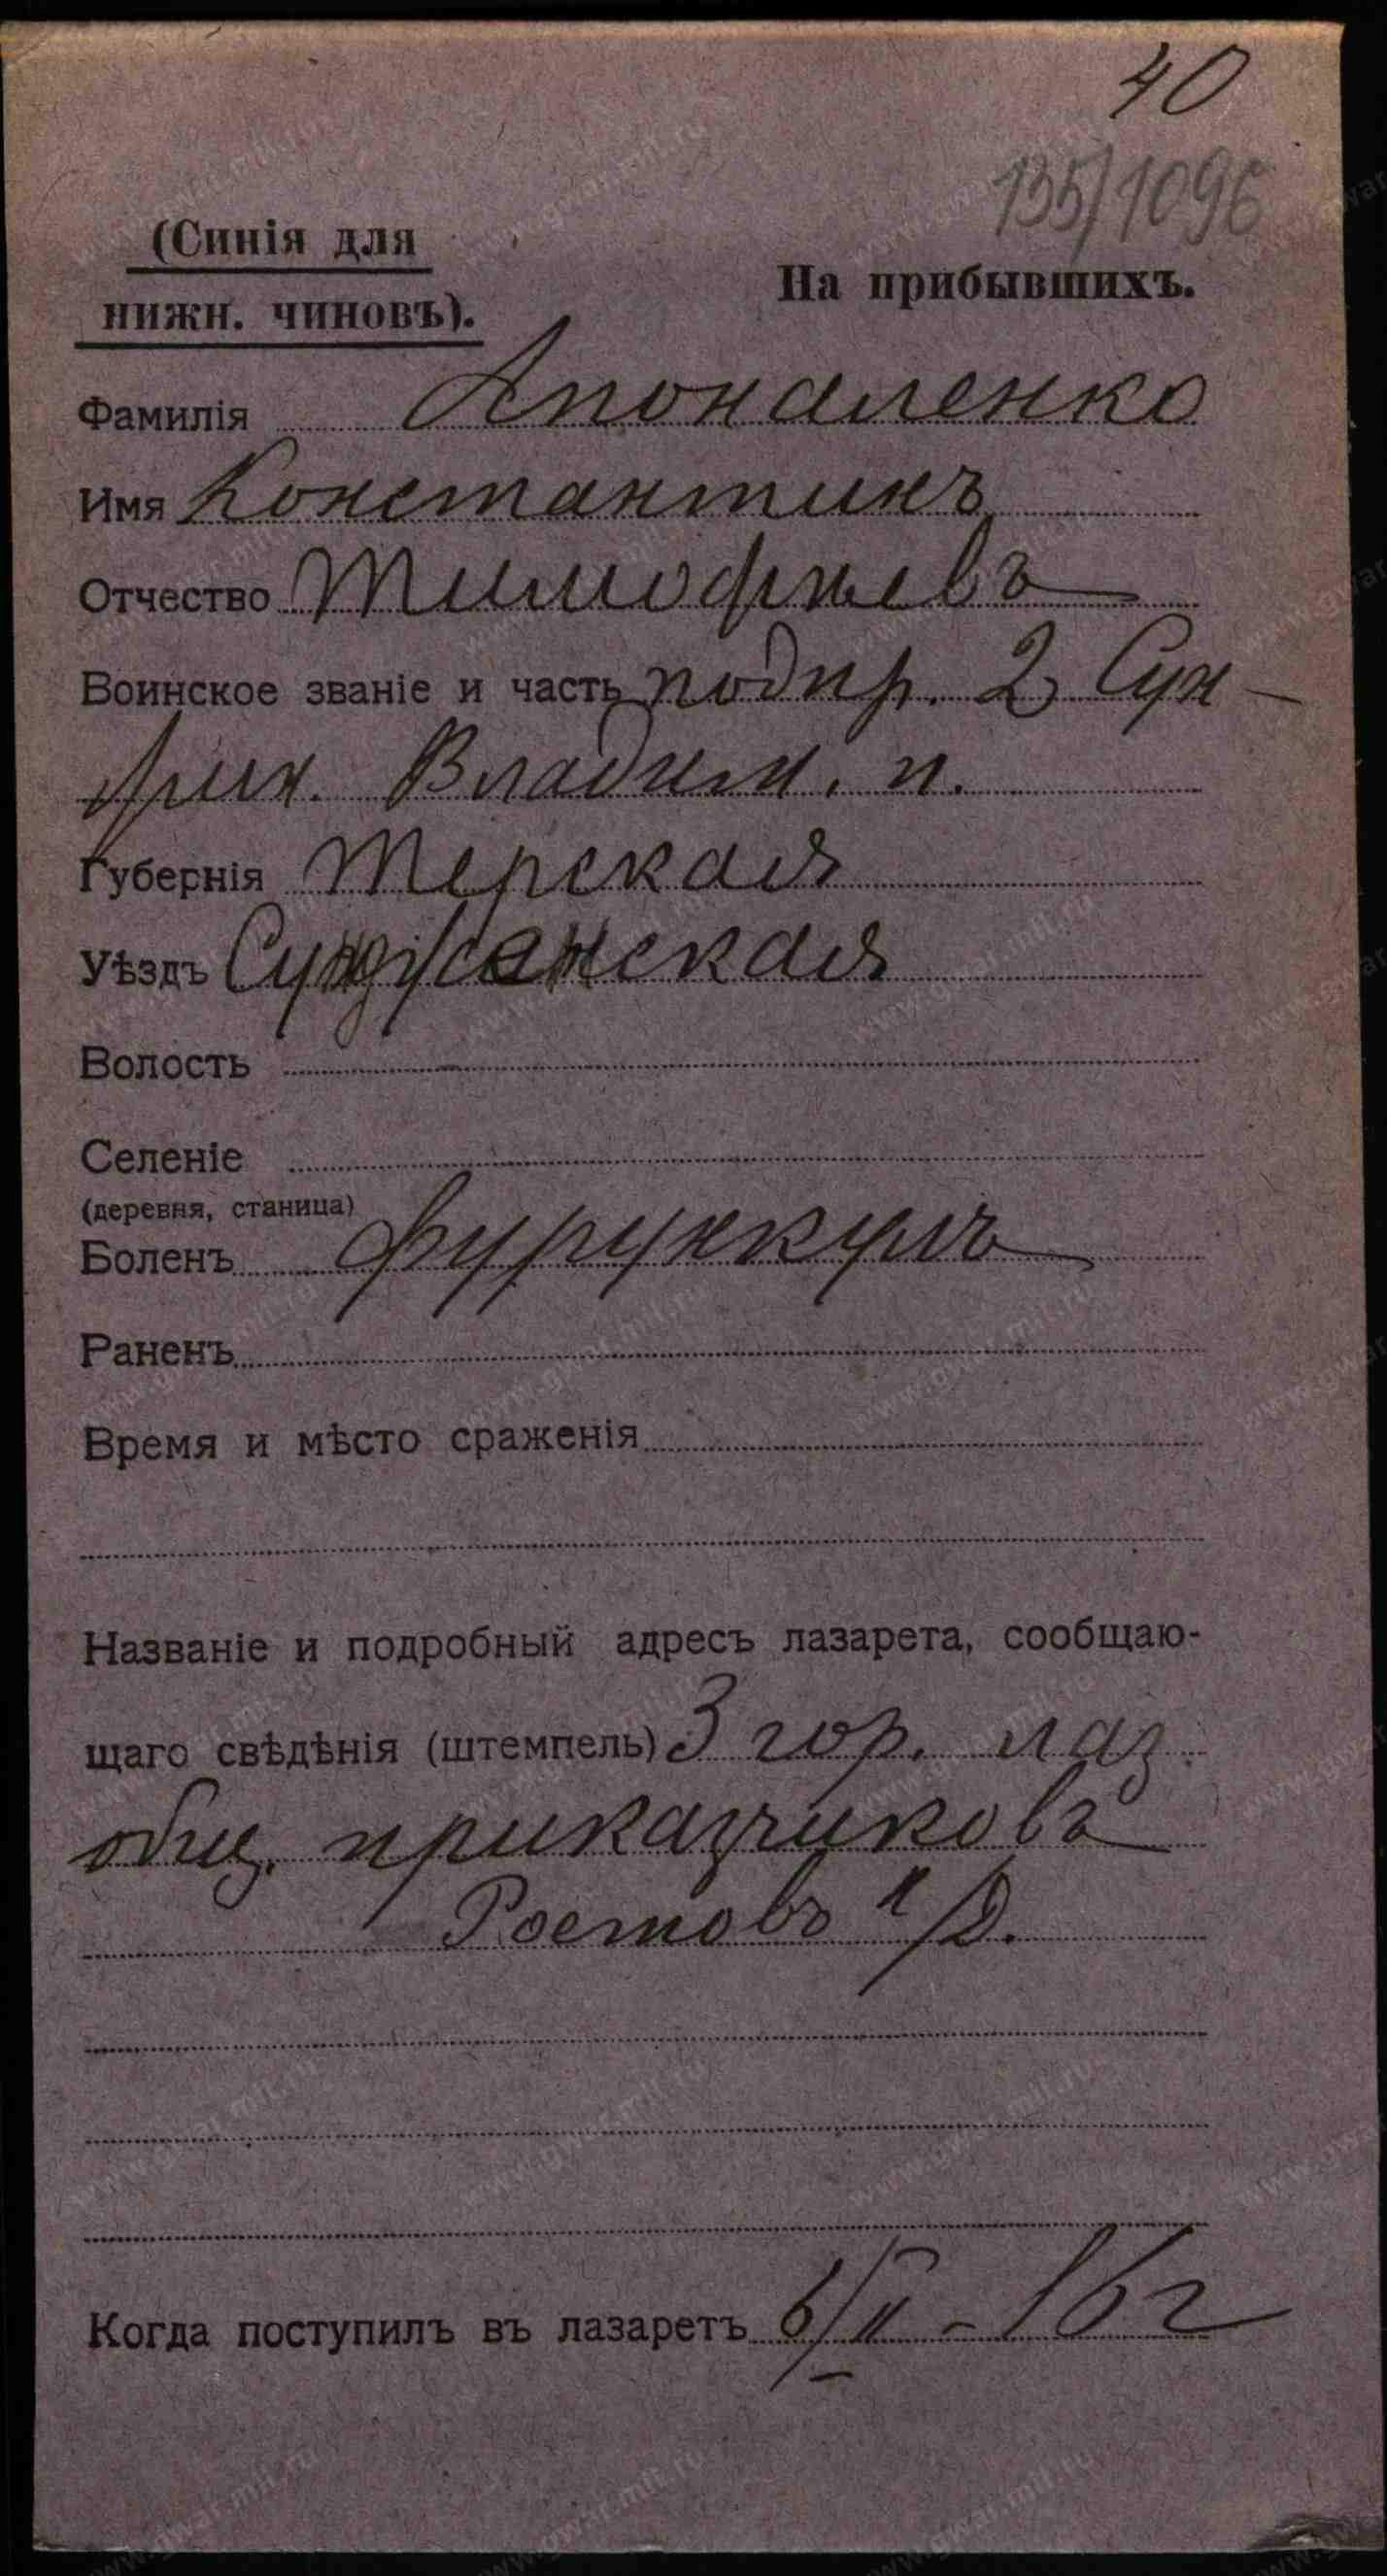 40
135/1096
(Синія для
нижн. чиновъ).
На прибывшихъ.
Фамилія Апоналенко
Имя Константинъ
Отчество Тимофѣевъ
Воинское званіе и часть подпр. 2 Сун-
жен. Владим. п.
Губернія Терская
Уѣздъ Сунженская
Волость
Селеніе
(деревня, станица)
Боленъ фурункулъ
Раненъ
Время и мѣсто сраженія
Названіе и подробный адресъ лазарета, сообщаю-
щаго свѣдѣнія (штемпель) 3 гор. лаз.
общ. приказчиковъ
Ростовъ н/Д.
Когда поступилъ въ лазаретъ 6/II - 16 г